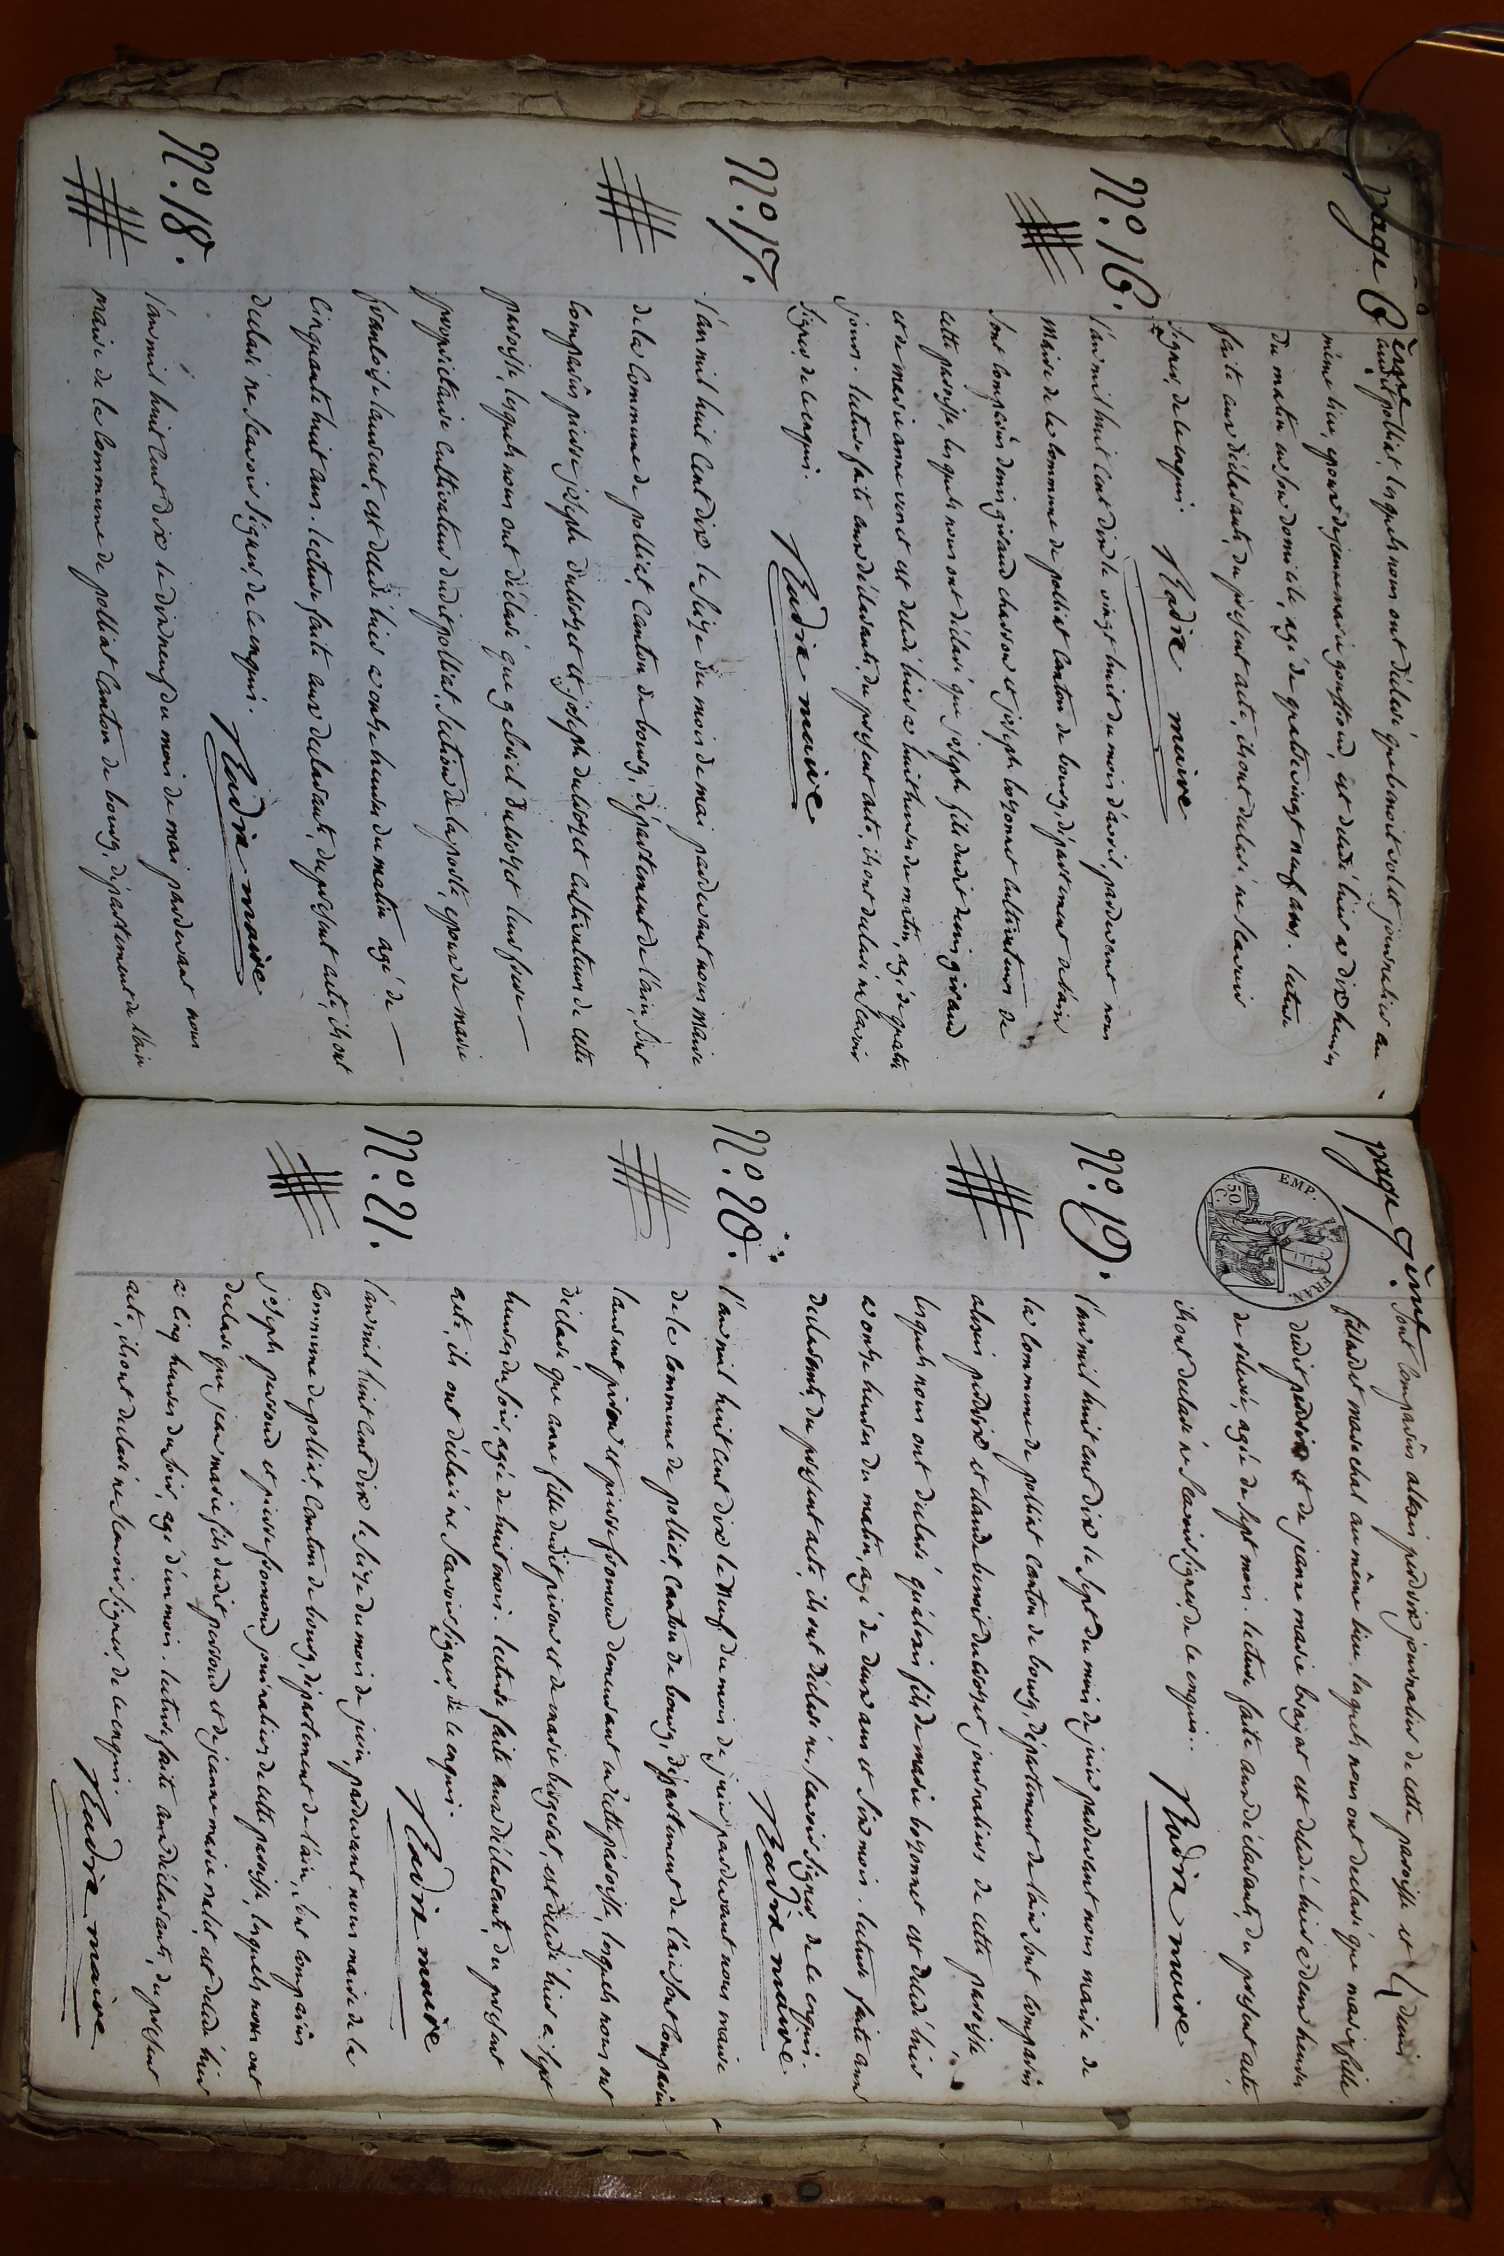 page 6ème
audit polliat, lesquels nous ont déclaré que benoit volet journalier au
même lieu, epoux de jeanne marie gouffroud, est décédé hier a dix heures
du matin en son domicile, agé de quatre vingt neuf ans. lecture
faite aux déclarants, du present acte, ils ont déclaré ne scavoir
signer, de ce enquis. Nadix maire
N.º 16.
l'an mil huit cent dix le vingt huit du mois d'avril pardevant nous
maire de la commune de polliat canton de bourg, département de l'ain
sont comparûs denis giraud charron et joseph bozonnet cultivateurs de
cette paroisse, lesquels nous ont déclaré que joseph fils dudit denis giraud
et de marie anne venet est décédé hier a huit heures du matin, agé de quatre
jours. lecture faite aux déclarants, du present acte, ils ont déclaré ne scavoir
signer de ce enquis. Nadix maire
N.º 17.
l'an mil huit cent dix le seize du mois de mai pardevant nous maire
de la commune de polliat, canton de bourg, département de l'ain, sont
comparûs pierre joseph dubozet et joseph dubozet cultivateurs de cette
paroisse, lesquels nous ont déclaré que gabriel dubozet leur frere
propriétaire cultivateur dudit polliat, section de la poste, epoux de marie
francoise laurent, est décédé hier a onze heures du matin agé de
cinquante huit ans. lecture faite aux declarants, du present acte, ils ont
déclaré ne scavoir signer, de ce enquis. Nadix maire
N.º 18.
l'an mil huit cent dix le dix neuf du mois de mai pardevant nous
maire de la commune de polliat canton de bourg, département de l'ain
page 7ème
EMP. FRAN.
50 C.
sont comparûs alexis perdrix journalier de cette paroisse et denis
fillardet marechal au même lieu, lesquels nous ont declaré que marie fille
dudit perdrix et de jeanne marie brayat est décédée hier a deux heures
de relevée, agée de sept mois. lecture faite aux déclarants, du present acte,
ils ont déclaré ne scavoir signer de ce enquis.. Nadix maire
N.º 19.
l'an mil huit cent dix le sept du mois de juin pardevant nous maire de
la commune de polliat canton de bourg, département de l'ain sont comparûs
alexis perdrix et claude benoit dubozet journaliers de cette paroisse,
lesquels nous ont déclaré qu'alexis fils de marie bozonnet est décédé hier
a onze heures du matin, agé de deux ans et six mois. lecture faite aux
declarants, du present acte, ils ont déclaré ne scavoir signer de ce enquis.
Nadix maire
N.º 20.
l'an mil huit cent dix le neuf du mois de juin pardevant nous maire
de la commune de polliat, canton de bourg, département de l'ain sont comparûs
laurent piron et pierre fromond demeurant en cette paroisse, lesquels nous ont
déclaré que anne fille dudit piron et de marie bergerat, est décédée hier a sept
heures du soir, agée de huit mois. lecture faite aux déclarants, du present
acte, ils ont déclaré ne scavoir signer de ce enquis.
Nadix maire
N.º 21.
l'an mil huit cent dix le seize du mois de juin pardevant nous maire de la
commune de polliat canton de bourg, département de l'ain, sont comparûs
joseph perroud et pierre fromond, journaliers de cette paroisse, lesquels nous ont
declaré que jean marie fils dudit perroud et de jeanne marie nalet, est décédé hier
a cinq heures du soir, agé d'un mois. lecture faite aux déclarants, du present
acte, ils ont déclaré ne scavoir signer, de ce enquis. Nadix maire